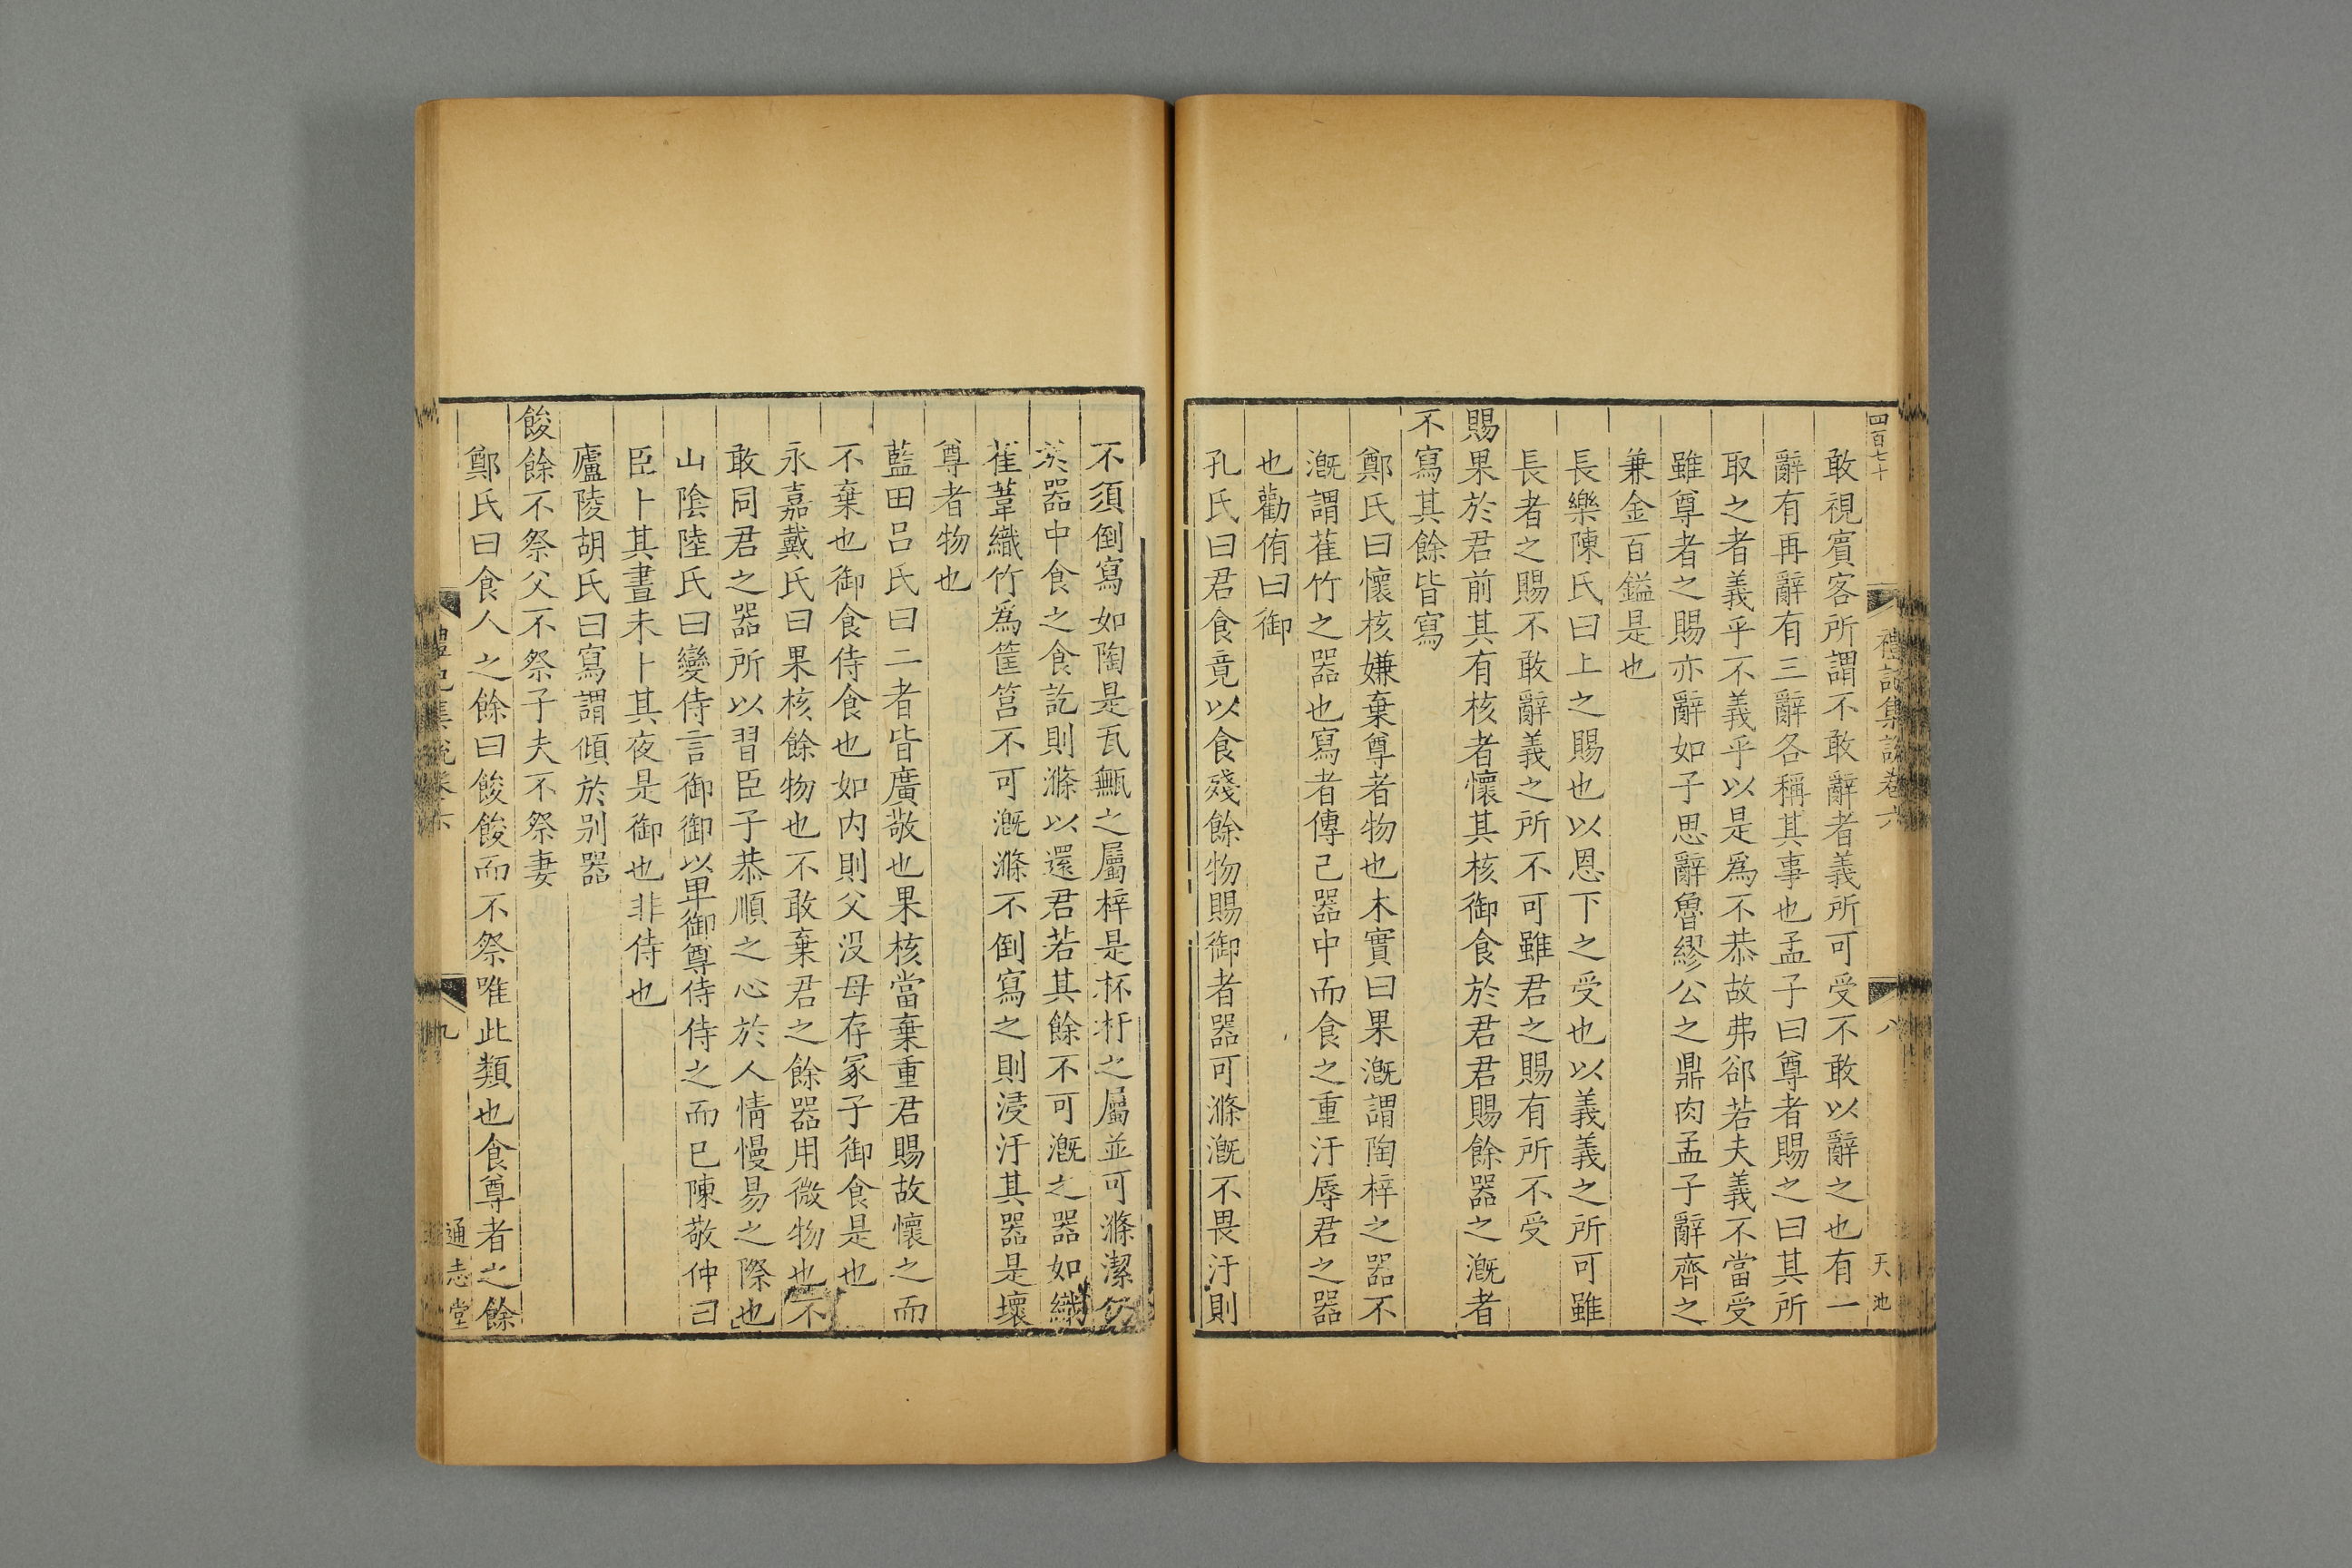 四百七十
禮記集說卷六
八
天池
敢視賓客所謂不敢辭者義所可受不敢以辭之也有一
辭有再辭有三辭各稱其事也孟子曰尊者賜之曰其所
取之者義乎不義乎以是爲不恭故弗郤若夫義不當受
雖尊者之賜亦辭如子思辭魯繆公之鼎肉孟子辭齊之
兼金百鎰是也
長樂陳氏曰上之賜也以恩下之受也以義義之所可雖
長者之賜不敢辭義之所不可雖君之賜有所不受
賜果於君前其有核者懷其核御食於君君賜餘器之漑者
不寫其餘皆寫
鄭氏曰懷核嫌棄尊者物也木實曰果漑謂陶梓之器不
漑謂萑竹之器也寫者傳己器中而食之重汙辱君之器
也勸侑曰御
孔氏曰君食竟以食殘餘物賜御者器可滌漑不畏汙則
不須倒寫如陶是瓦甒之屬梓是杯杅之屬並可滌潔
於器中食之食訖則滌以還君若其餘不可漑之器如織
萑葦織竹爲筐筥不可漑滌不倒寫之則浸汙其器是壞
尊者物也
藍田吕氏曰二者皆廣敬也果核當棄重君賜故懷之而
不棄也御食侍食也如内則父没母存冢子御食是也
永嘉戴氏曰果核餘物也不敢棄君之餘器用微物也不
敢同君之器所以習臣子恭順之心於人情慢易之際也
山陰陸氏曰變侍言御御以卑御尊侍侍之而已陳敬仲曰
臣卜其晝未卜其夜是御也非侍也
廬陵胡氏曰寫謂傾於别器
餕餘不祭父不祭子夫不祭妻
鄭氏曰食人之餘曰餕餕而不祭唯此類也食尊者之餘
禮記集說卷六
九
通志堂